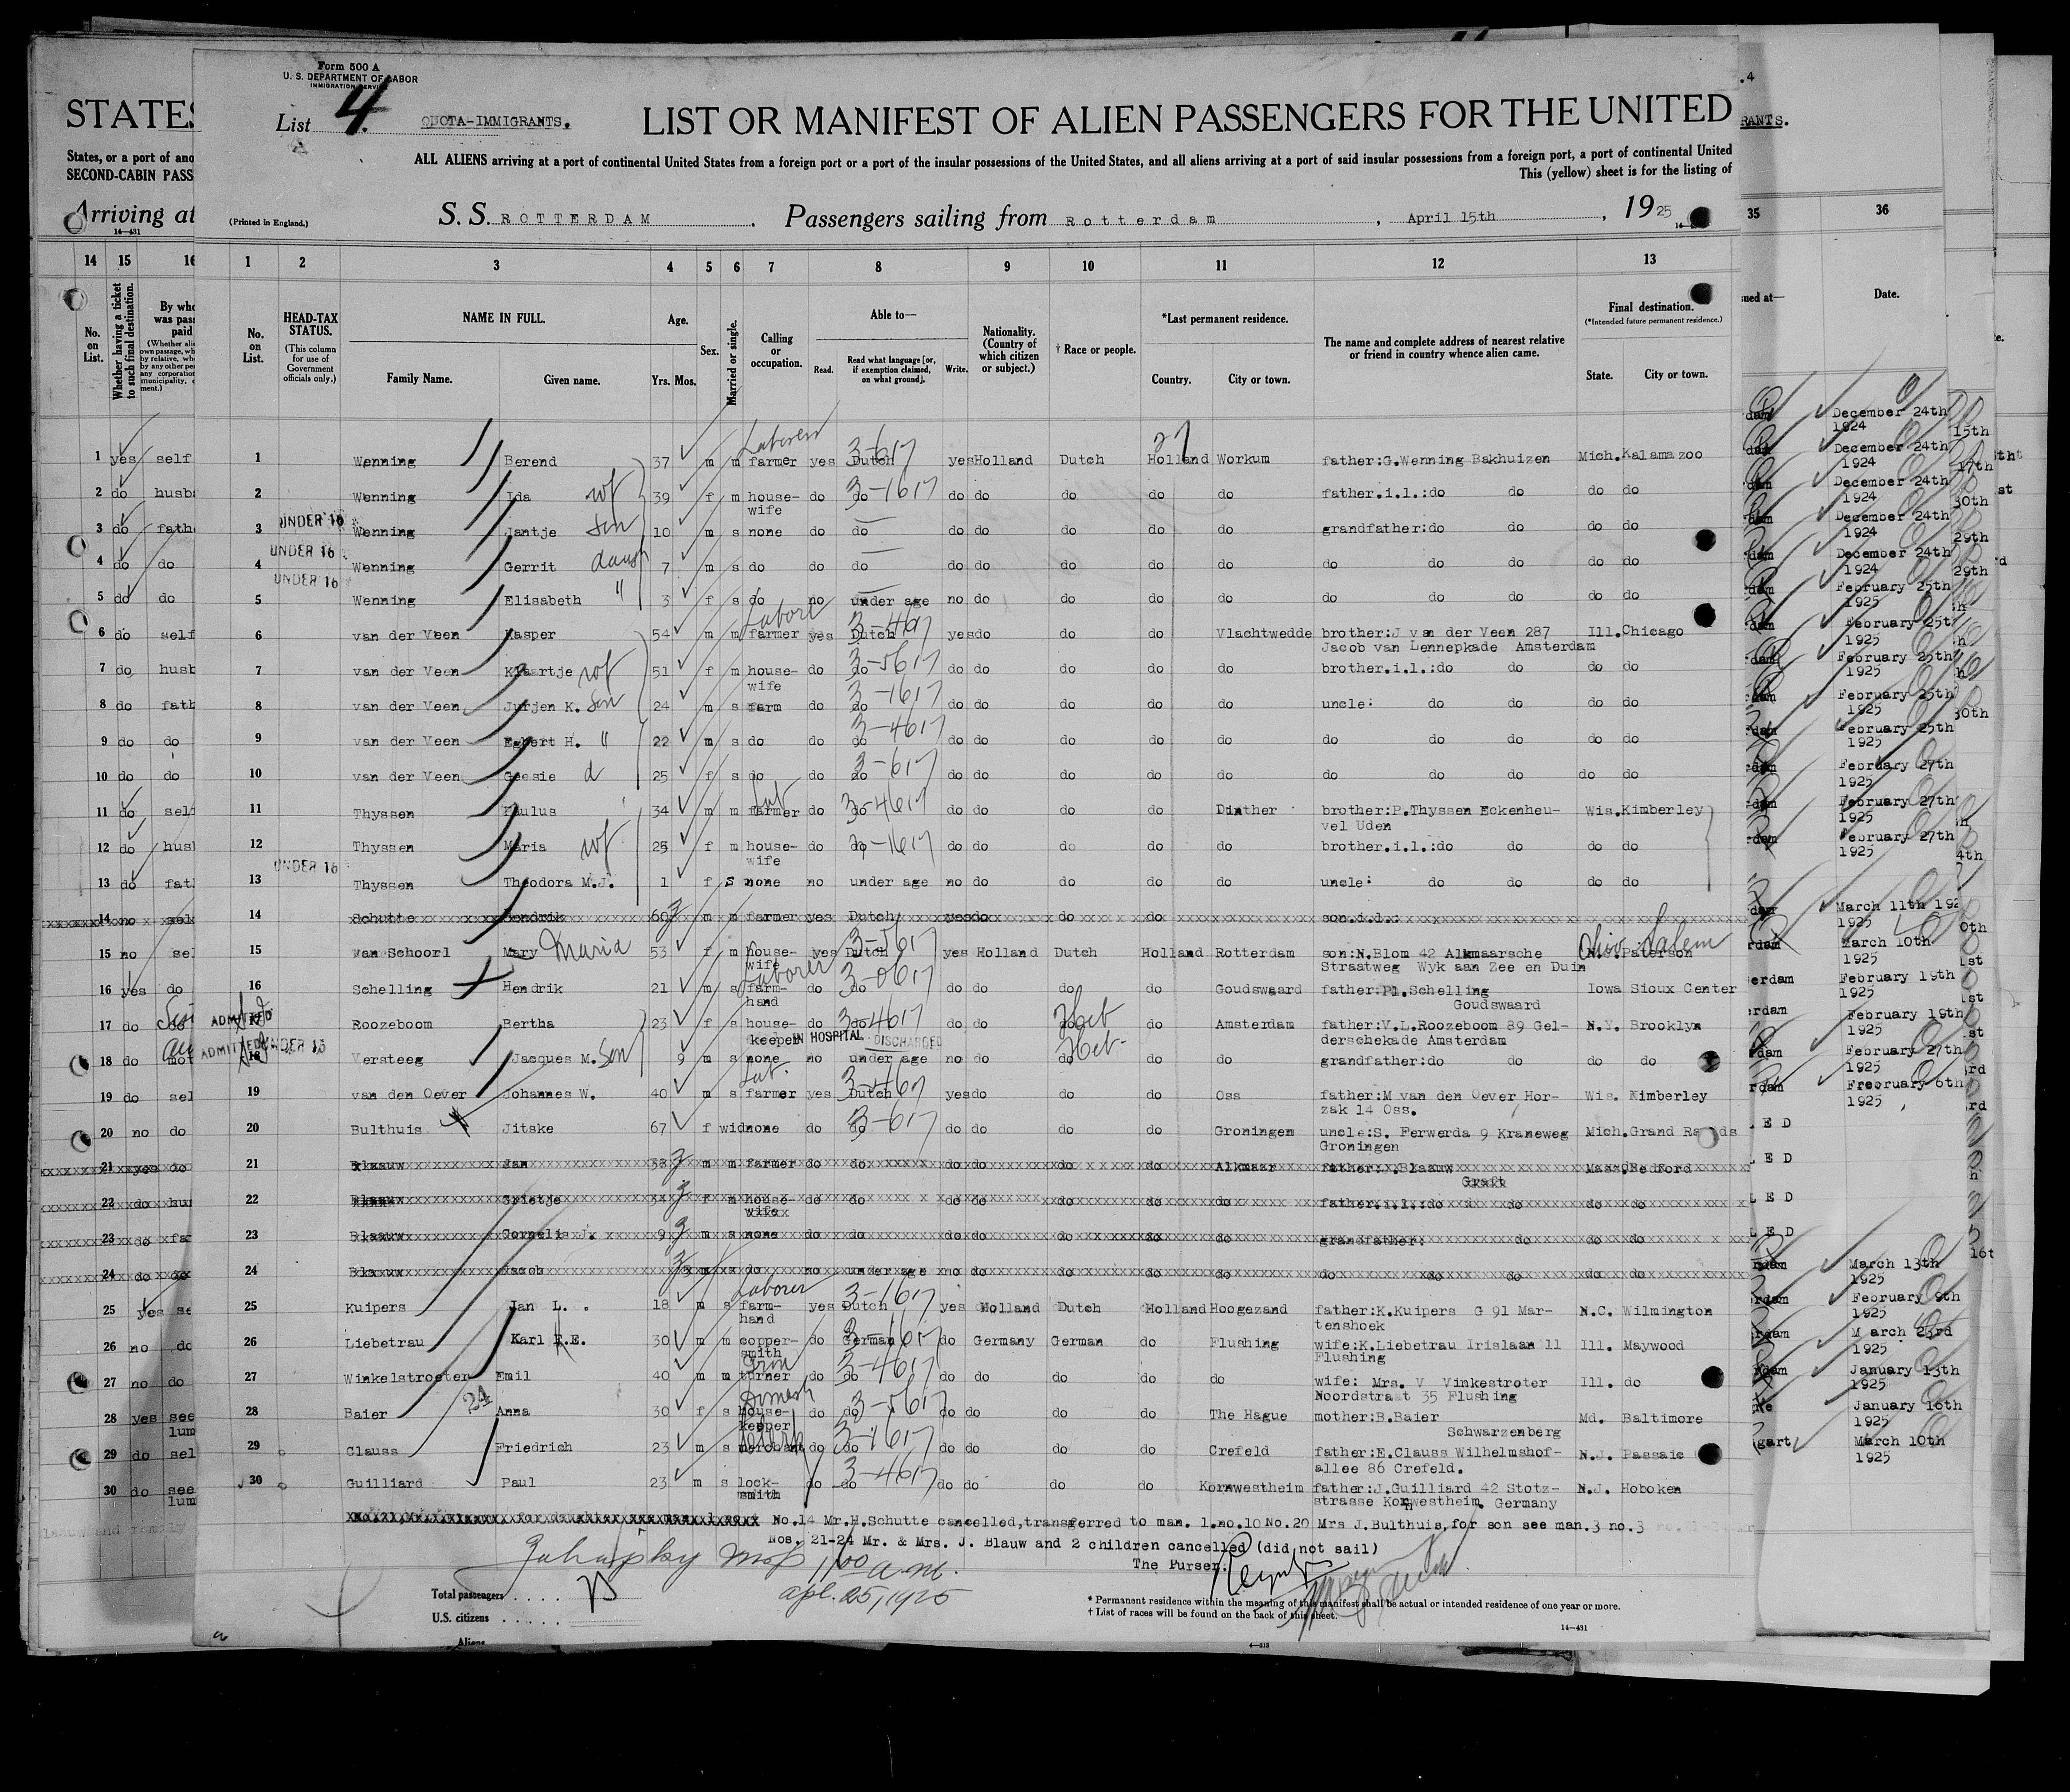 Form 500 A
U. S. DEPARTMENT OF LABOR
IMMIGRATION SERVICE
STATES
List 4. QUOTA-IMMIGRANTS. LIST OR MANIFEST OF ALIEN PASSENGERS FOR THE UNITED
RANTS.
ALL ALIENS arriving at a port of continental United States from a foreign port or a port of the insular possessions of the United States, and all aliens arriving at a port of said insular possessions from a foreign port, a port of continental United
This (yellow) sheet is for the listing of
States, or a port of ano
SECOND-CABIN PASS
Arriving at
14—431
(Printed in England.)
S. S. ROTTERDAM. Passengers sailing from Rotterdam, April 15th, 1925
14 15 16 1 2 3 4 5 6 7 8 9 10 11 12 13 35 36
No. on List.
Whether having a ticket to such final destination.
No. on List.
HEAD-TAX STATUS.
(This column for use of Government officials only.)
NAME IN FULL.
Family Name. Given name.
Age.
Yrs. Mos.
Sex.
Married or single.
Calling or occupation.
Able to—
Read. Read what language [or, if exemption claimed, on what ground]. Write.
Nationality. (Country of which citizen or subject.)
† Race or people.
*Last permanent residence.
Country. City or town.
The name and complete address of nearest relative or friend in country whence alien came.
Final destination.
(*Intended future permanent residence.)
State. City or town.
Date.
1 yes self 1 Wenning Berend 37 m m farmer yes Dutch yes Holland Dutch Holland Workum father:G.Wenning Bakhuizen Mich. Kalamazoo
2 do husb 2 Wenning Ida wf 39 f m house-wife do do do do do do do father.i.l.:do do do do
3 do fathe UNDER 16 3 Wenning Jantje son 10 m s none do do do do do do do grandfather:do do do do
4 do do UNDER 16 4 Wenning Gerrit 7 m s do do do do do do do do do do do do do
5 do do UNDER 16 5 Wenning Elisabeth " 3 f s do no under age no do do do do do do do do do
6 do self 6 van der Veen Kasper 54 m m farmer yes Dutch yes do do do Vlachtwedde brother:J van der Veen 287 Ill. Chicago
Jacob van Lennepkade Amsterdam
7 do husb 7 van der Veen Klaartje wf 51 f m house-wife do do do do do do do brother.i.l.:do do do do
8 do fath 8 van der Veen Jurjen K. Son 24 m s farm do do do do do do do uncle: do do do do
9 do do 9 van der Veen Egbert H. " 22 m s do do do do do do do do do do do do do
10 do do 10 van der Veen Geesie d 25 f s do do do do do do do do do do do do do
11 do self 11 Thyssen Paulus 34 m m farmer do do do do do do Dinther brother:P.Thyssen Eckenheu- Wis. Kimberley
vel Uden
12 do husb 12 Thyssen Maria wf 25 f m house-wife do do do do do do do brother.i.l.:do do do do
13 do fath UNDER 16 13 Thyssen Theodora M.J. 1 f s none no under age no do do do do uncle: do do do do
14 no self 14 Schutte Hendrik 60 m m farmer yes Dutch yes do do do son.i.l.:
15 no sel 15 van Schoorl Mary Maria 53 f m house-wife yes Dutch yes Holland Dutch Holland Rotterdam son:N.Blom 42 Alkmaarsche N.J. Paterson Ohio Salem
Straatweg Wyk aan Zee en Duin
16 yes do 16 Schelling Hendrik 21 m s farm-hand Laborer do do do do do do Goudswaard father:Pl.Schelling Iowa Sioux Center
Goudswaard
17 do do ADMITTED 17 Roozeboom Bertha 23 f s house-keeper do do do do do do Amsterdam father:V.L.Roozeboom 89 Gel- N.Y. Brooklyn
derschekade Amsterdam
IN HOSPITAL DISCHARGED
18 do mot ADMITTED UNDER 16 18 Versteeg Jacques M. Son 9 m s none no under age no do do do do grandfather:do do do do
19 do sel 19 van den Oever Johannes W. 40 m s farmer yes Dutch yes do do do Oss father:M van den Oever Hor- Wis. Kimberley
zak 14 Oss.
20 no do 20 Bulthuis Jitske 67 f wid none do do do do do do Groningen uncle:S. Ferwerda 9 Kraneweg Mich. Grand Rapids
Groningen
21 yes do 21 Blaauw Jan 38 m m farmer do do do do do do Alkmaar father:.Blaauw Mass. Bedford
Graft
22 do hus 22 Blaauw Grietje 34 f m house-wife do do do do do do do father.i.l.:do do do do
23 do fa 23 Blaauw Cornelis J. 9 m s none do do do do do do do grandfather: do do do
24 do do 24 Blaauw Jacob m s do no under age no do do do do do do do do do
25 yes se 25 Kuipers Jan L. 18 m s farm-hand Laborer yes Dutch yes Holland Dutch Holland Hoogezand father:K.Kuipers G 91 Mar- N.C. Wilmington
tenshoek
26 no do 26 Liebetrau Karl E.E. 30 m m copper-smith do German do Germany German do Flushing wife:K.Liebetrau Irislaan 11 Ill. Maywood
Flushing
27 no do 27 Winkelstroeter Emil 40 m m Iron turner do do do do do do do wife: Mrs. V Vinkestroter Ill. do
Noordstraat 35 Flushing
28 yes see lum 28 Baier 24 Anna 30 f s house-keeper do do do do do do The Hague mother:B.Baier Md. Baltimore
Schwarzenberg
29 do sel 29 Clauss Friedrich 23 m s merchant Clerk do do do do do do Crefeld father:E.Clauss Wilhelmshof- N.J. Passaic
allee 86 Crefeld.
30 do see lum 30 Guilliard Paul 23 m s lock-smith do do do do do do Kornwestheim father:J.Guilliard 42 Stotz- N.J. Hoboken
strasse Kornwestheim. Germany
No.14 Mr.H.Schutte cancelled,transferred to man. 1.no.10 No.20 Mrs J.Bulthuis,for son see man.3 no.3
Nos. 21-24 Mr. & Mrs. J. Blauw and 2 children cancelled (did not sail)
The Purser.
1100 a.m.
Apl. 25, 1925
Total passengers . . . .
U.S. citizens . . . . .
Aliens
* Permanent residence within the meaning of this manifest shall be actual or intended residence of one year or more.
† List of races will be found on the back of this sheet.
14—431
December 24th 1924
December 24th 1924
December 24th 1924
December 24th 1924
December 24th 1924
February 25th 1925
February 25th 1925
February 25th 1925
February 25th 1925
February 25th 1925
February 27th 1925
February 27th 1925
February 27th 1925
March 11th 1925
March 10th 1925
February 19th 1925
February 19th 1925
February 27th 1925
February 6th 1925
March 13th 1925
February 9th 1925
March 23rd 1925
January 13th 1925
January 16th 1925
March 10th 1925